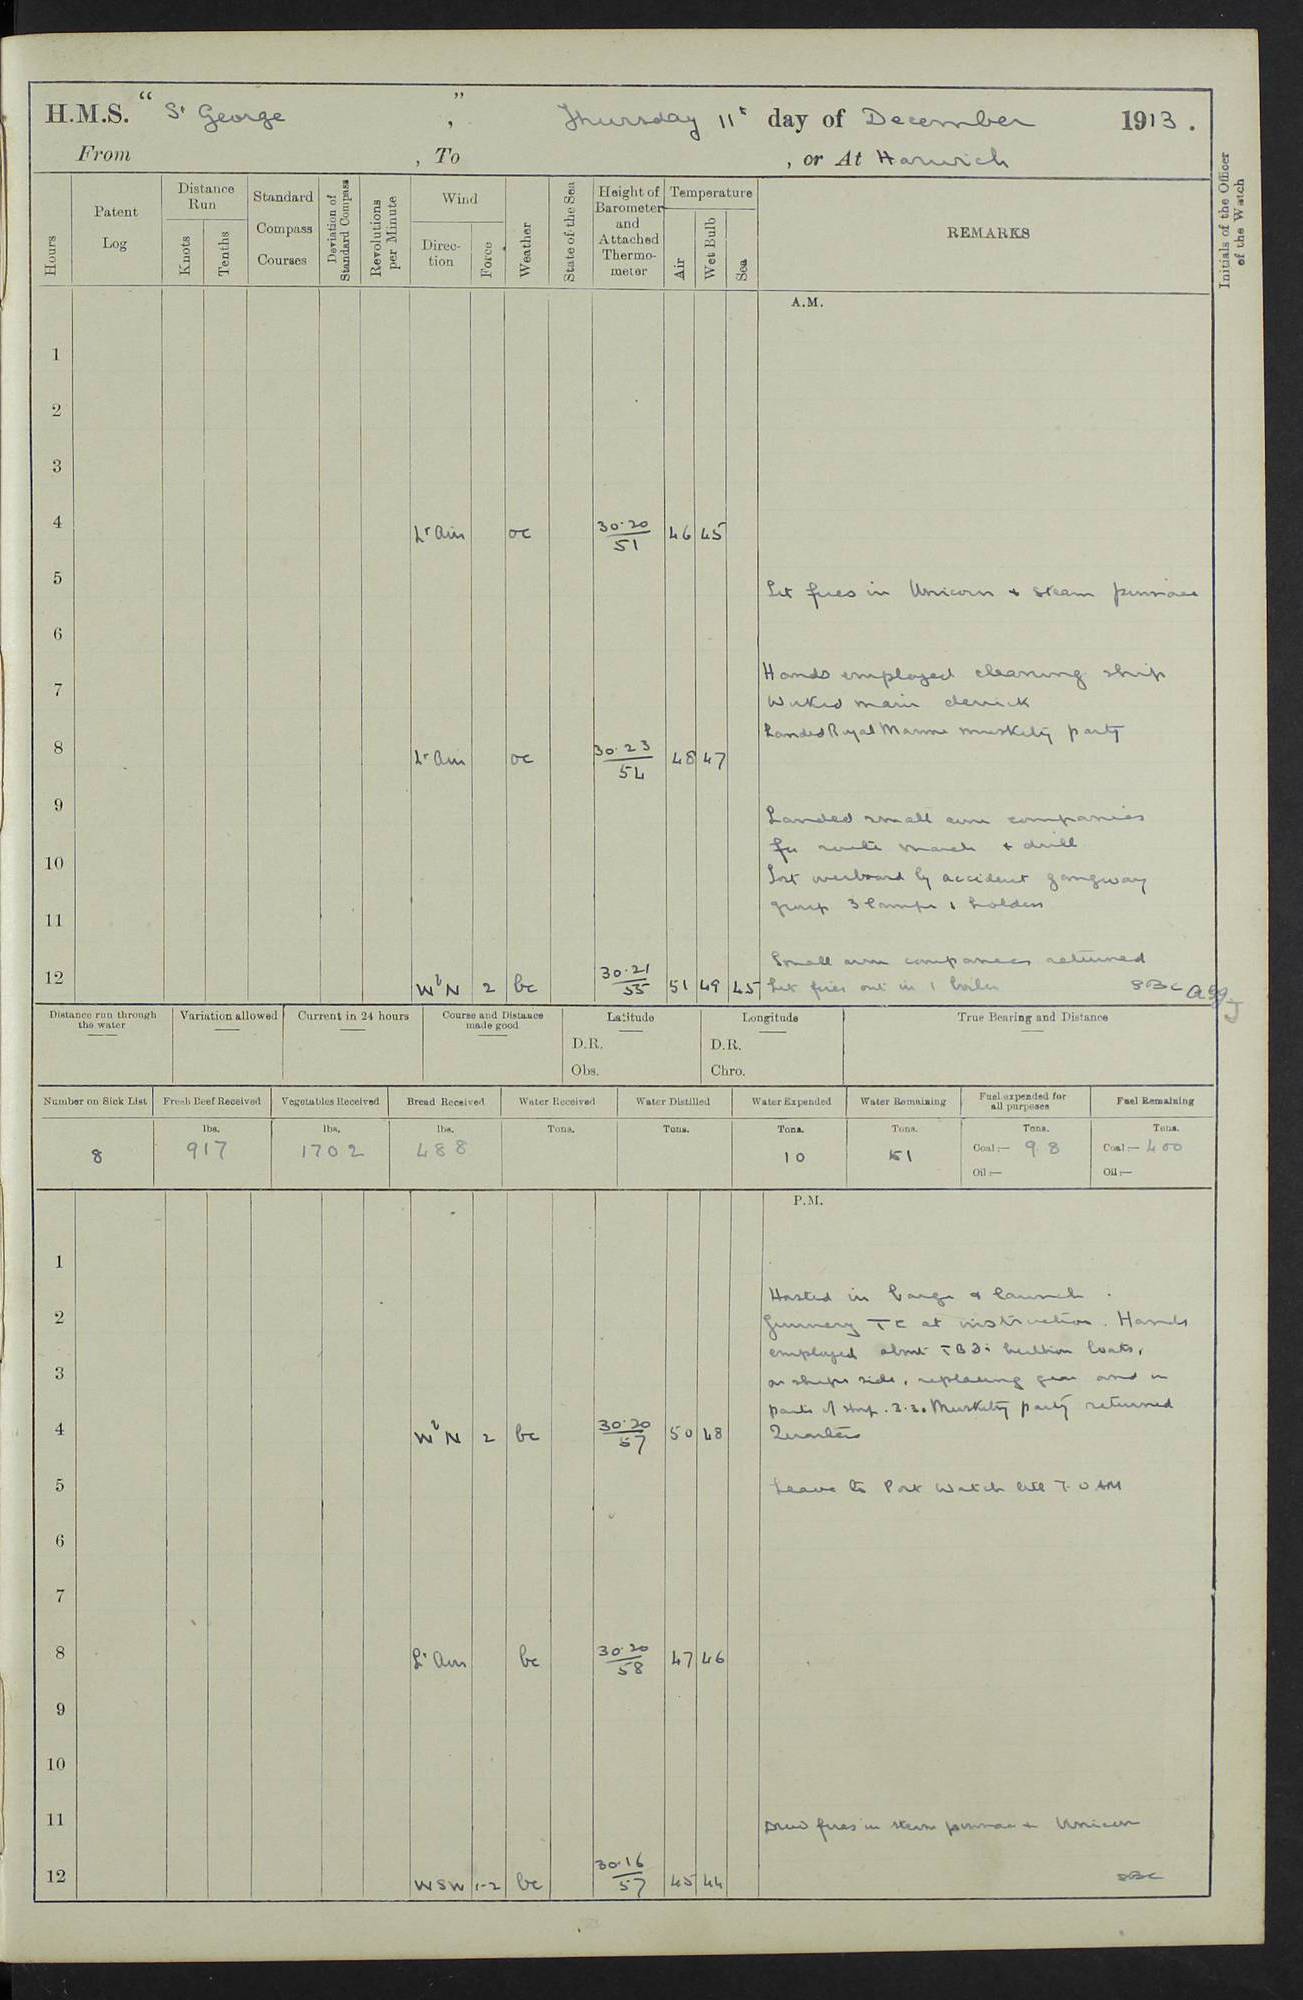 H.M.S. “ St George ” , Thursday 11t day of December 1913 .
From , To , or At Harwich
Hours
Patent Log
Distance Run
Knots Tenths
Standard Compass Courses
Deviation of Standard Compass
Revolutions per Minute
Wind
Direction Force
Weather
State of the Sea
Height of Barometer and Attached Thermometer
Temperature
Air Wet Bulb Sea
REMARKS
Initials of the Officer of the Watch
A.M.
1
2
3
4 Lt Airs oc 30.20/51 46 45
5 Lit fires in Unicorn + steam pinnace
6
Hands employed cleaning ship
7 Worked main derrick
Landed Royal Marine musketry party
8 Lt Airs oc 30.23/54 48 47
9 Landed small arm companies
for route march + drill
10 Lost overboard by accident gangway
group 3 lamps 1 holder
11
Small arm companies returned
12 WbN 2 bc 30.21/55 51 49 45 Let fires out in 1 boiler SBC
Distance run through the water
Variation allowed
Current in 24 hours
Course and Distance made good
Latitude
D.R.
Obs.
Longitude
D.R.
Chro.
True Bearing and Distance
Number on Sick List Fresh Beef Received Vegetables Received Bread Received Water Received Water Distilled Water Expended Water Remaining Fuel expended for all purposes Fuel Remaining
lbs. lbs. lbs. Tons. Tons. Tons. Tons. Tons. Tons.
8 917 1702 488 10 51 Coal:— 9.8 Coal:— 400
Oil:— Oil:—
P.M.
1
Hoisted in barge & launch .
2 Gunnery TC at instruction. Hands
employed about TBDs bullion boats,
3 on ships side, replacing gear and in
parts of ship. 3.30 Musketry party returned
4 WbN 2 bc 30.20/57 50 48 Quarters
5 Leave to Port Watch till 7.0 AM
6
7
8 Lt Airs bc 30.20/58 47 46
9
10
11 Drew fires in steam pinnace + Unicorn
12 WSW 1-2 bc 30.16/57 45 44 SBC